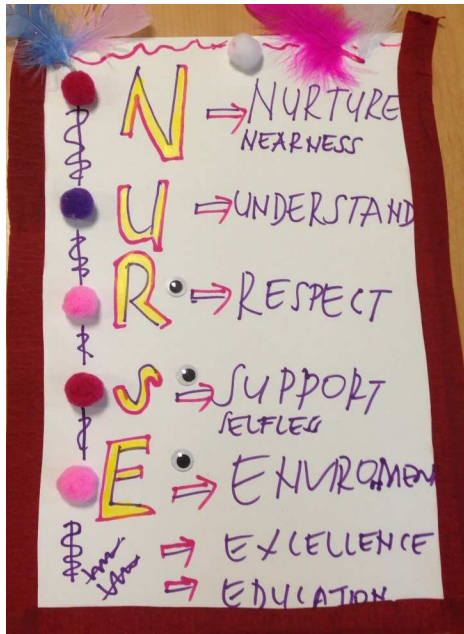 N ⇒ NURTURE
NEARNESS
U ⇒ UNDERSTAND
R ⇒ RESPECT
S ⇒ SUPPORT
SELFLESS
E ⇒ ENVIROMEN
⇒ EXCELLENCE
⇒ EDUCATION